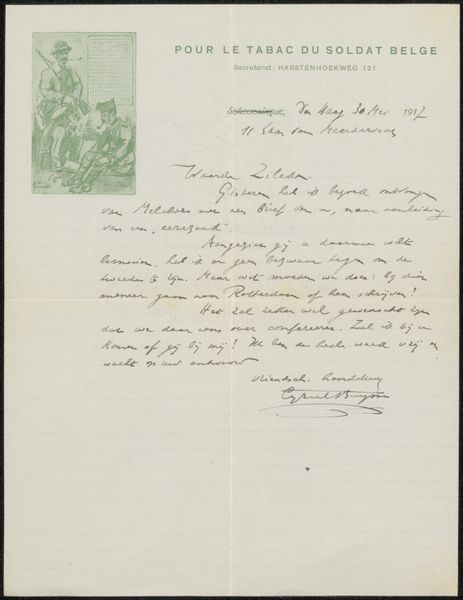 POUR LE TABAC DU SOLDAT BELGE
Secretariat: HARSTENHOEKWEG 121
Scheveningue, Den Haag 30 Mei 1917
11 Laan van Meerdervoort
Waarde Zilcken
Gisteren heb ik bezoek ontvangen
van Melchers met een brief van u, naar aanleiding
van een „eerezaak".
Aangezien gij u daarmee wilt
bemoeien, heb ik er geen bezwaar tegen om de
tweede te zijn. Maar wat moeten we doen: bij dien
meneer gaan naar Rotterdam of hem schrijven?
Het zal zeker wel gewenscht zijn
dat we daar eens over confereren. Zal ik bij u
komen of gij bij mij? Ik ben de heele week vrij en
wacht op uw antwoord
vriendsch. handdruk
Cyriel Buysse